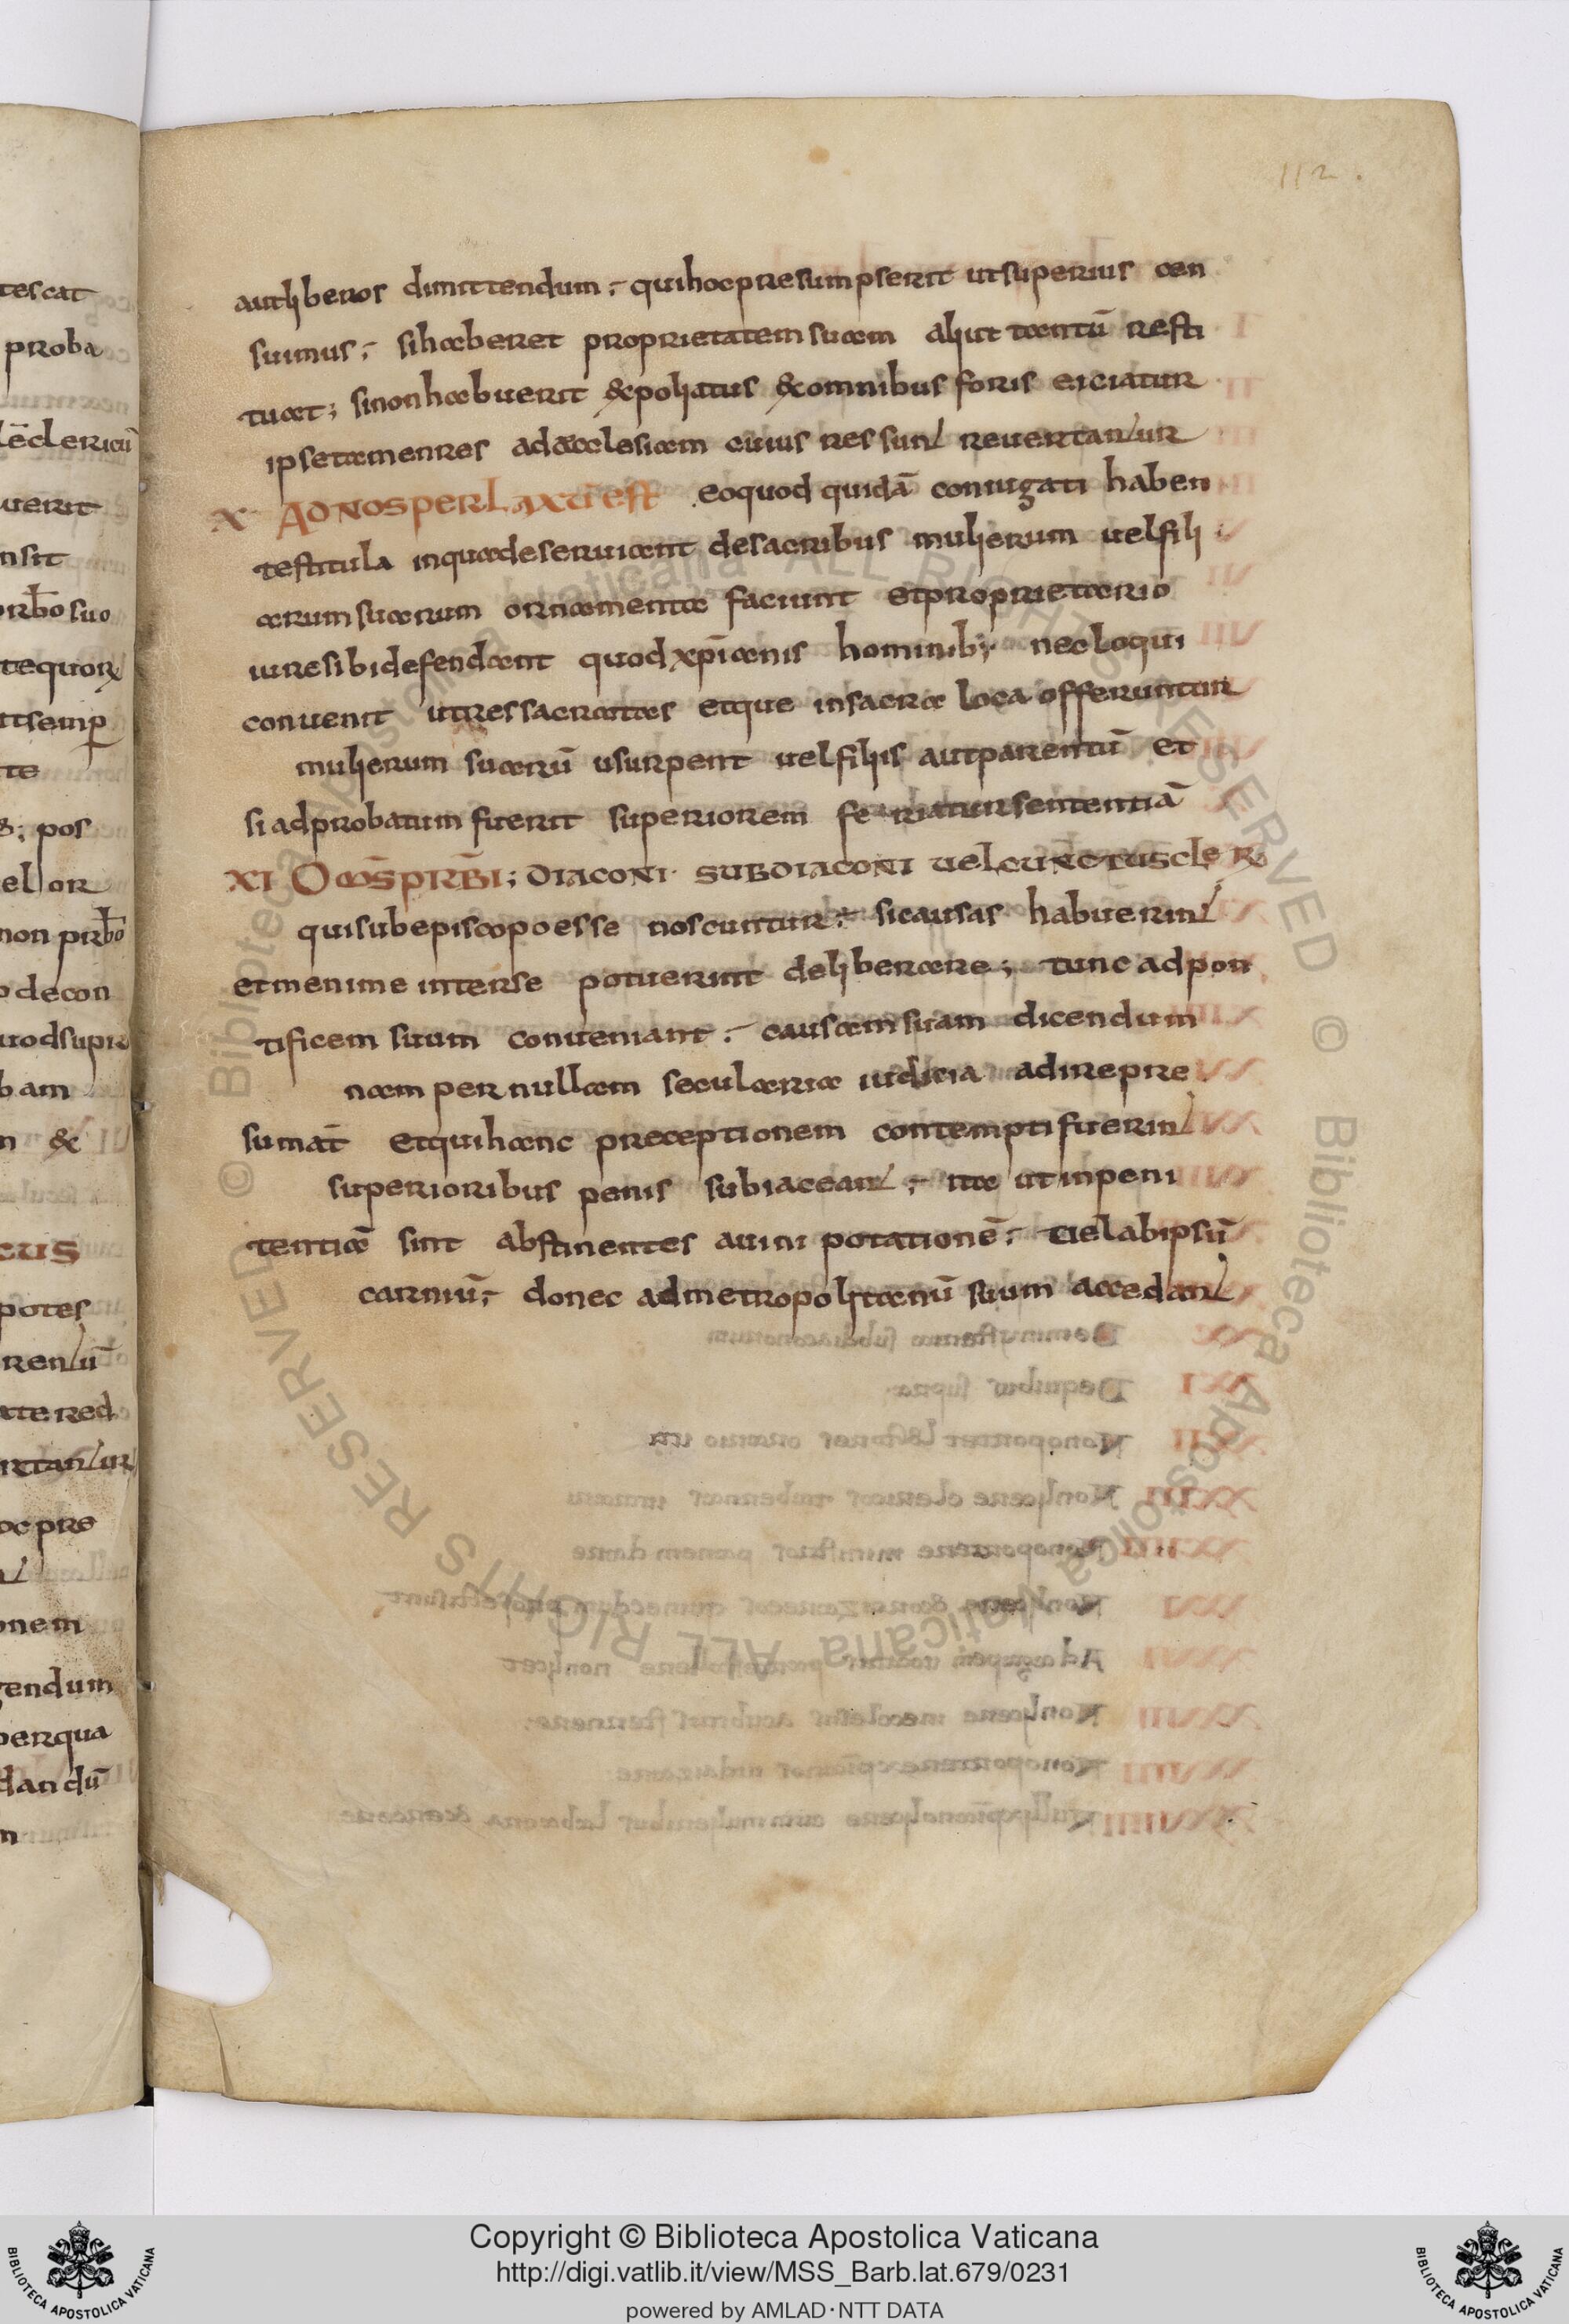 112.
autliberos dimittendum; quihocpresumpserit utsuperius cen
suimus; sihaberet proprietatemsuam aliut tantū resti
tuat; sinonhabuerit &poliatus &omnibus foris eiciatur
ipsetamenres adaecclesiam cuius res sunt reuertantur
X· Ad nos perlatū est eoquod quidā coniugati haben
testitula inquadeseruiant desacribus mulierum uelfili
arumsuarum ornamenta faciunt etproprietario
iuresibidefendant quodxp̄ianis hominib; nec loqui
conuenit utressacratas etque insacra loca offeruntur
mulierum suarū usurpent uelfiliis autparentū et
siadprobatumfuerit superiorem feriatursententiā
XI Om̄s prb̄i; diaconi· subdiaconi uelcunctuscler
quisubepiscopoesse noscuntur; sicausas habuerint
etmenime interse potuerint deliberare; tunc adpon
tificem suum conueniant; causamsuam dicendum
nam per nullam secularia iudicia adirepre
sumat̄ etquihanc preceptionem contemptifuerint
superioribus penis subiaceant; ita utinpeni
tentiā sint abstinentes auini potationē; uelabipsū
carniū; donec admetropolitanū suum accedant
tescat
proba
lēclericū
uerit
nsit
prb̄o suo
tequor
utsemp
te
pos
el or
non prb̄o
decon
uodsupr
bam
n &
cus
potes
rentū
ate red
rtantur
oc pre
onem
gendum
perqua
dandū
m
© Biblioteca Apostolica Vaticana ALL RIGHTS RESERVED © Biblioteca Apostolica Vaticana ALL RIGHTS RESERVED
Copyright © Biblioteca Apostolica Vaticana
http://digi.vatlib.it/view/MSS_Barb.lat.679/0231
powered by AMLAD·NTT DATA
BIBLIOTECA APOSTOLICA VATICANA
BIBLIOTECA APOSTOLICA VATICANA